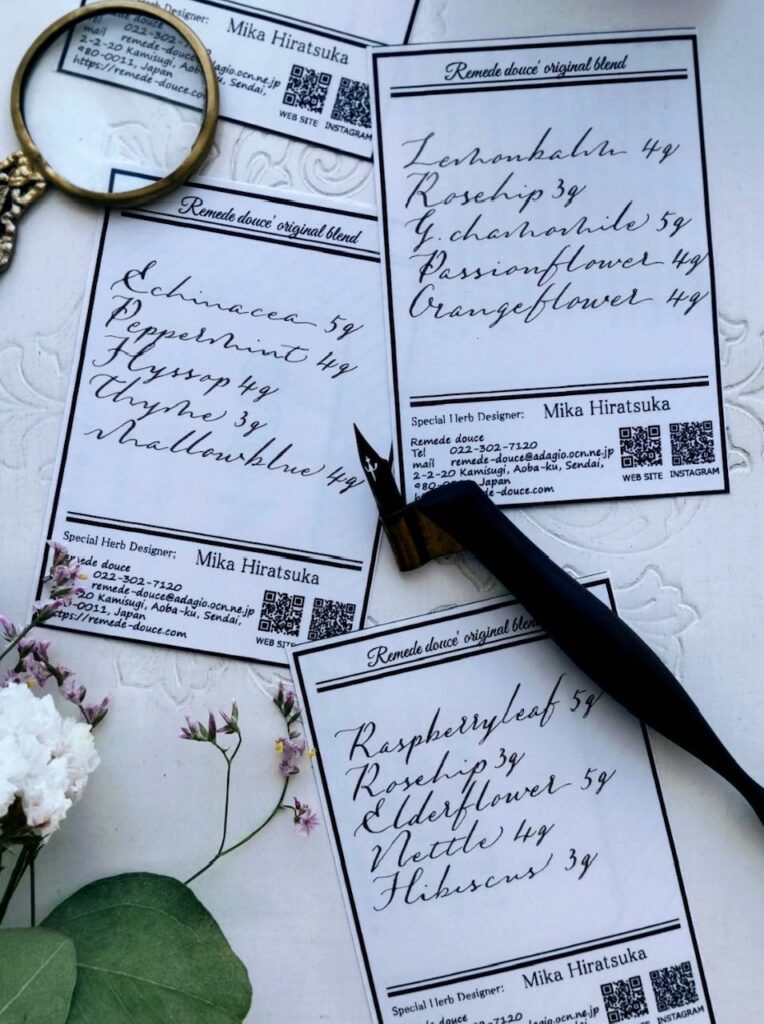 Special Herb Designer: Mika Hiratsuka
douce
022-302-7
mail remede-douce@adagio.ocn.ne.jp
2-2-20 Kamisugi, Aoba-ku, Sendai,
980-0011, Japan
https://remede-douce.com
WEB SITE INSTAGRAM
Remede douce' original blend
Lemonbalm 4g
Rosehip 3g
G.chamomile 5g
Passionflower 4g
Orangeflower 4g
Special Herb Designer: Mika Hiratsuka
Remede douce
Tel 022-302-7120
mail remede-douce@adagio.ocn.ne.jp
2-2-20 Kamisugi, Aoba-ku, Sendai,
980- Japan
-douce.com
WEB SITE INSTAGRAM
Remede douce' original blend
Echinacea 5g
Peppermint 4g
Hyssop 4g
Thyme 3g
Mallowblue 4g
Special Herb Designer: Mika Hiratsuka
Remede douce
022-302-7120
remede-douce@adagio.ocn.ne.jp
20 Kamisugi, Aoba-ku, Sendai,
-0011, Japan
https://remede-douce.com
WEB SITE
Remede douce' original blend
Raspberryleaf 5g
Rosehip 3g
Elderflower 5g
Nettle 4g
Hibiscus 3g
Special Herb Designer: Mika Hiratsuka
Remede douce
022-302-7120
remede-douce@adagio.ocn.ne.jp
Kamisugi, Aoba-ku, Sendai,
WEB SITE INSTAGRAM